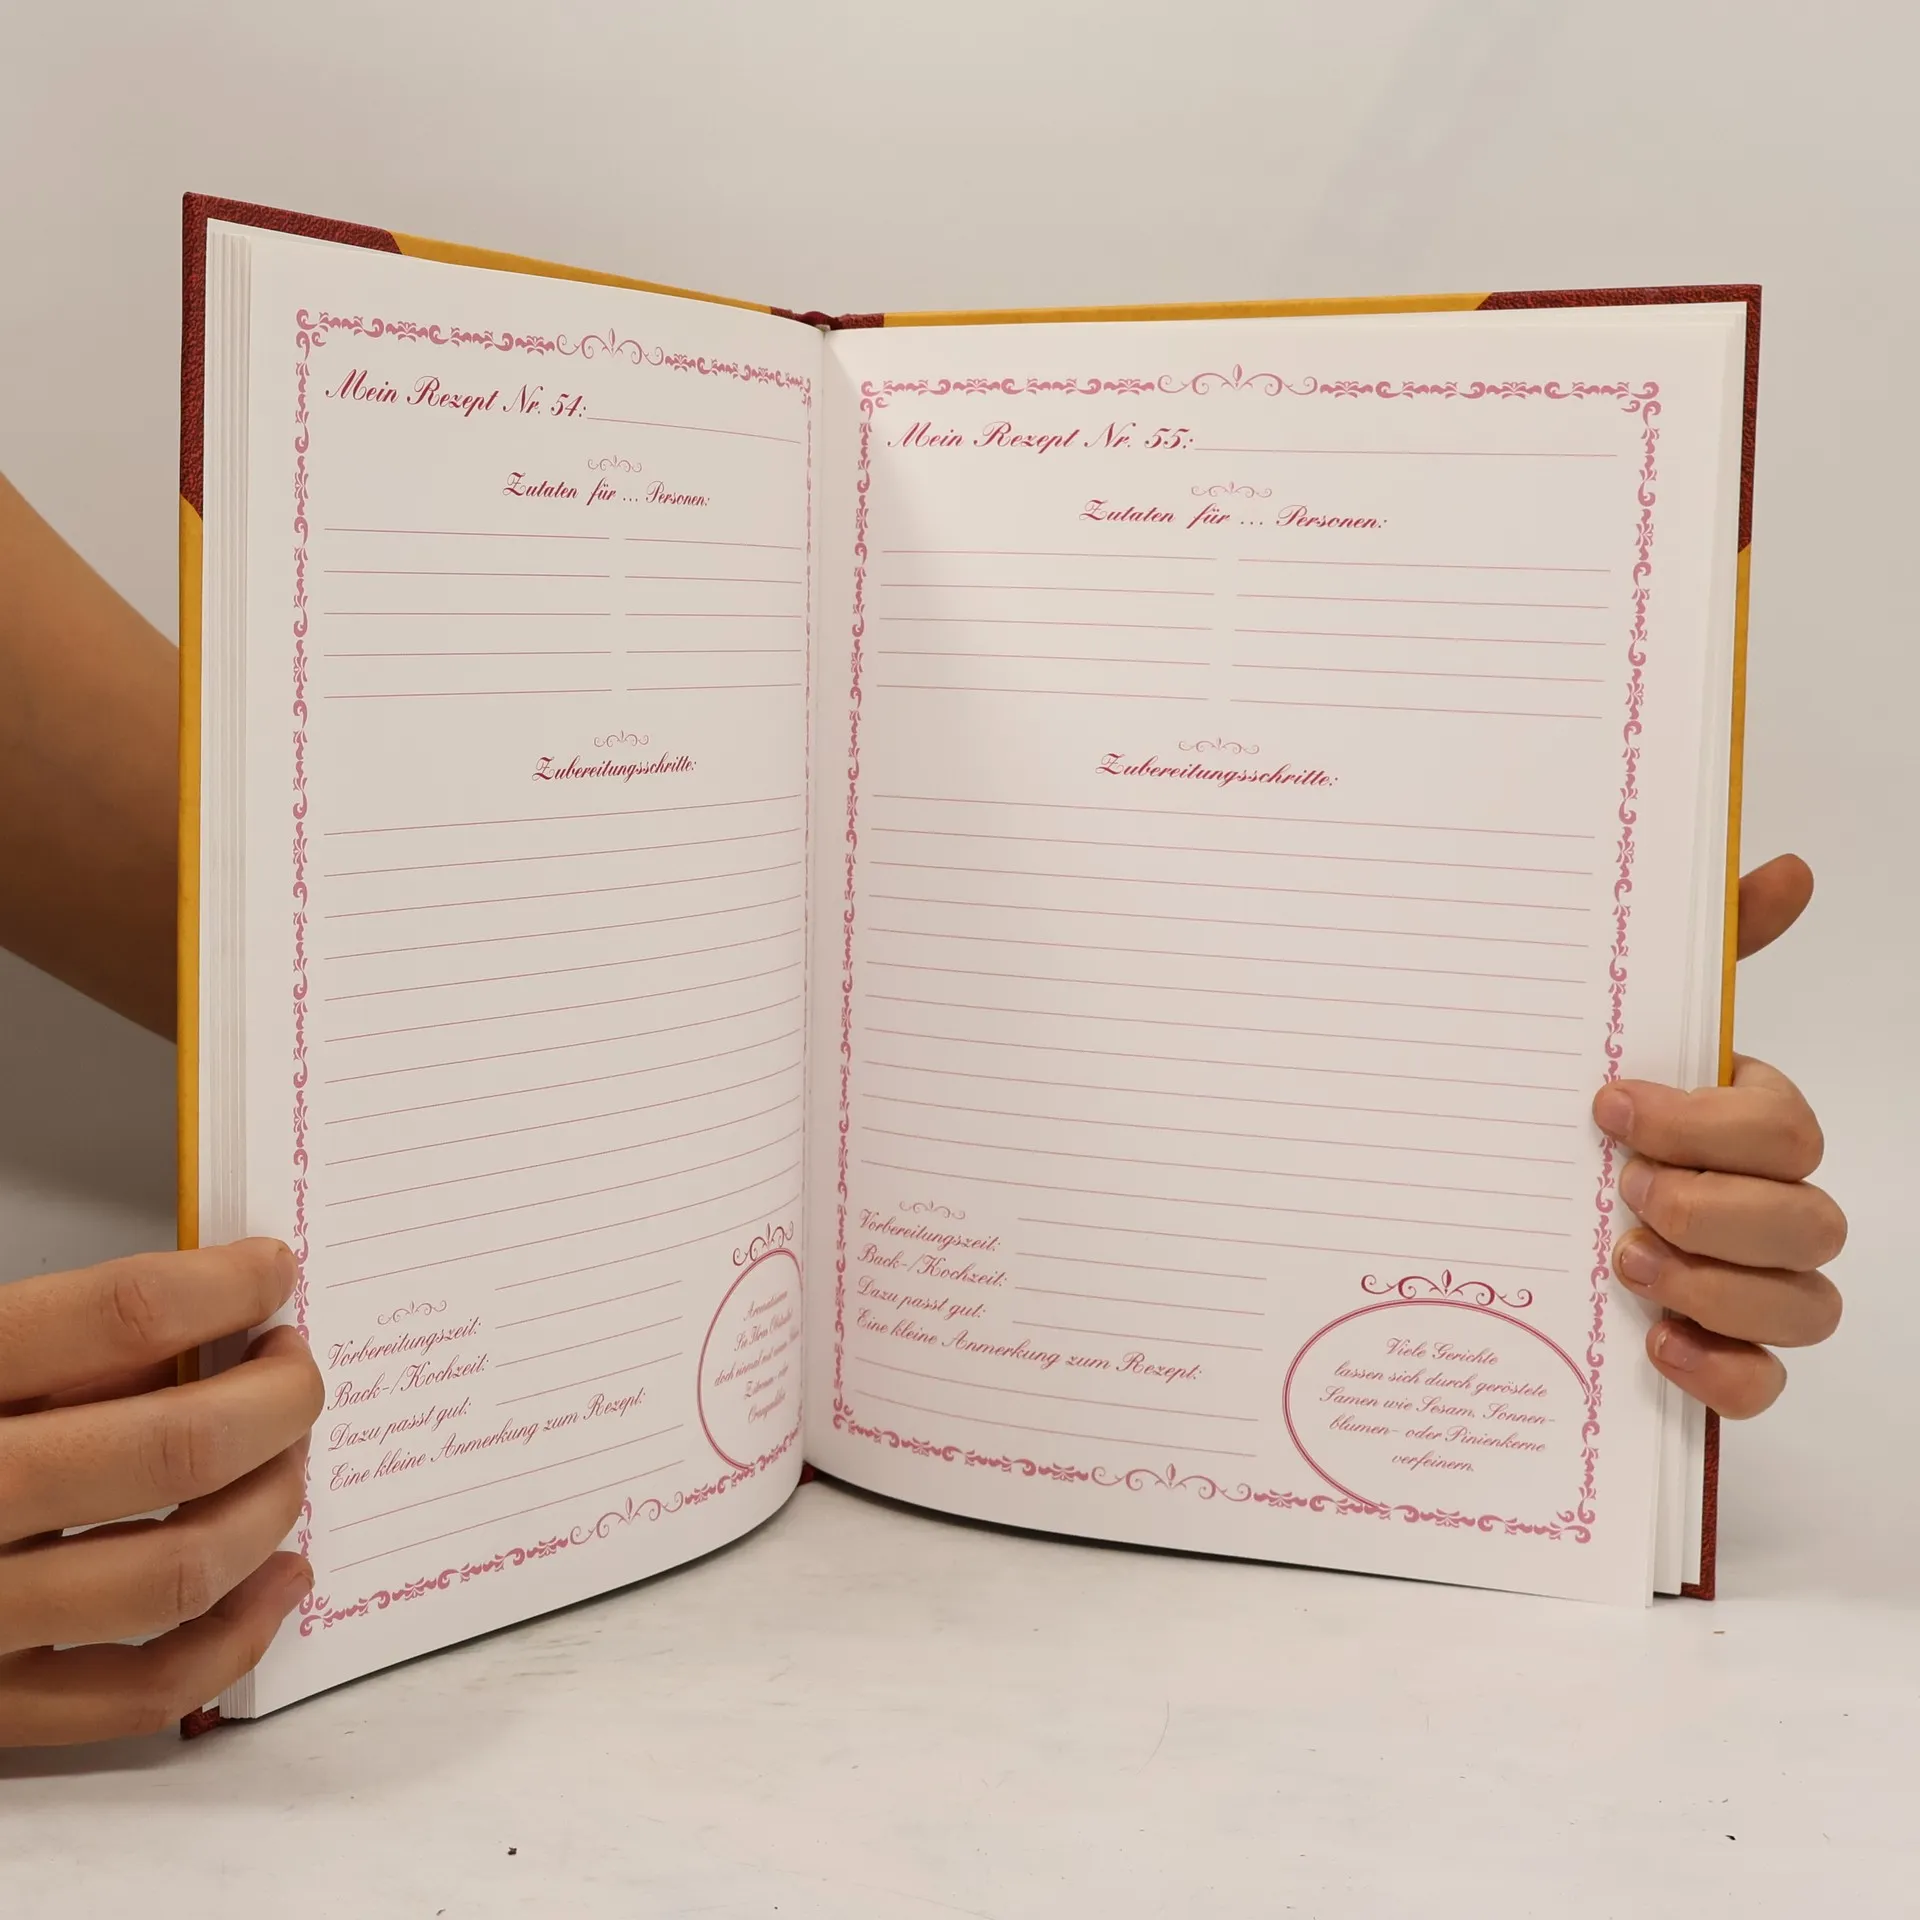 Mein Rezept Nr. 54:
Zutaten für ... Personen:
Zubereitungsschritte:
Vorbereitungszeit:
Back-/Kochzeit:
Dazu passt gut:
Eine kleine Anmerkung zum Rezept:
doch einmal mit
Zitronen- oder
Mein Rezept Nr. 55:
Zutaten für ... Personen:
Zubereitungsschritte:
Vorbereitungszeit:
Back-/Kochzeit:
Dazu passt gut:
Eine kleine Anmerkung zum Rezept:
Viele Gerichte
lassen sich durch geröstete
Samen wie Sesam, Sonnen-
blumen- oder Pinienkerne
verfeinern.